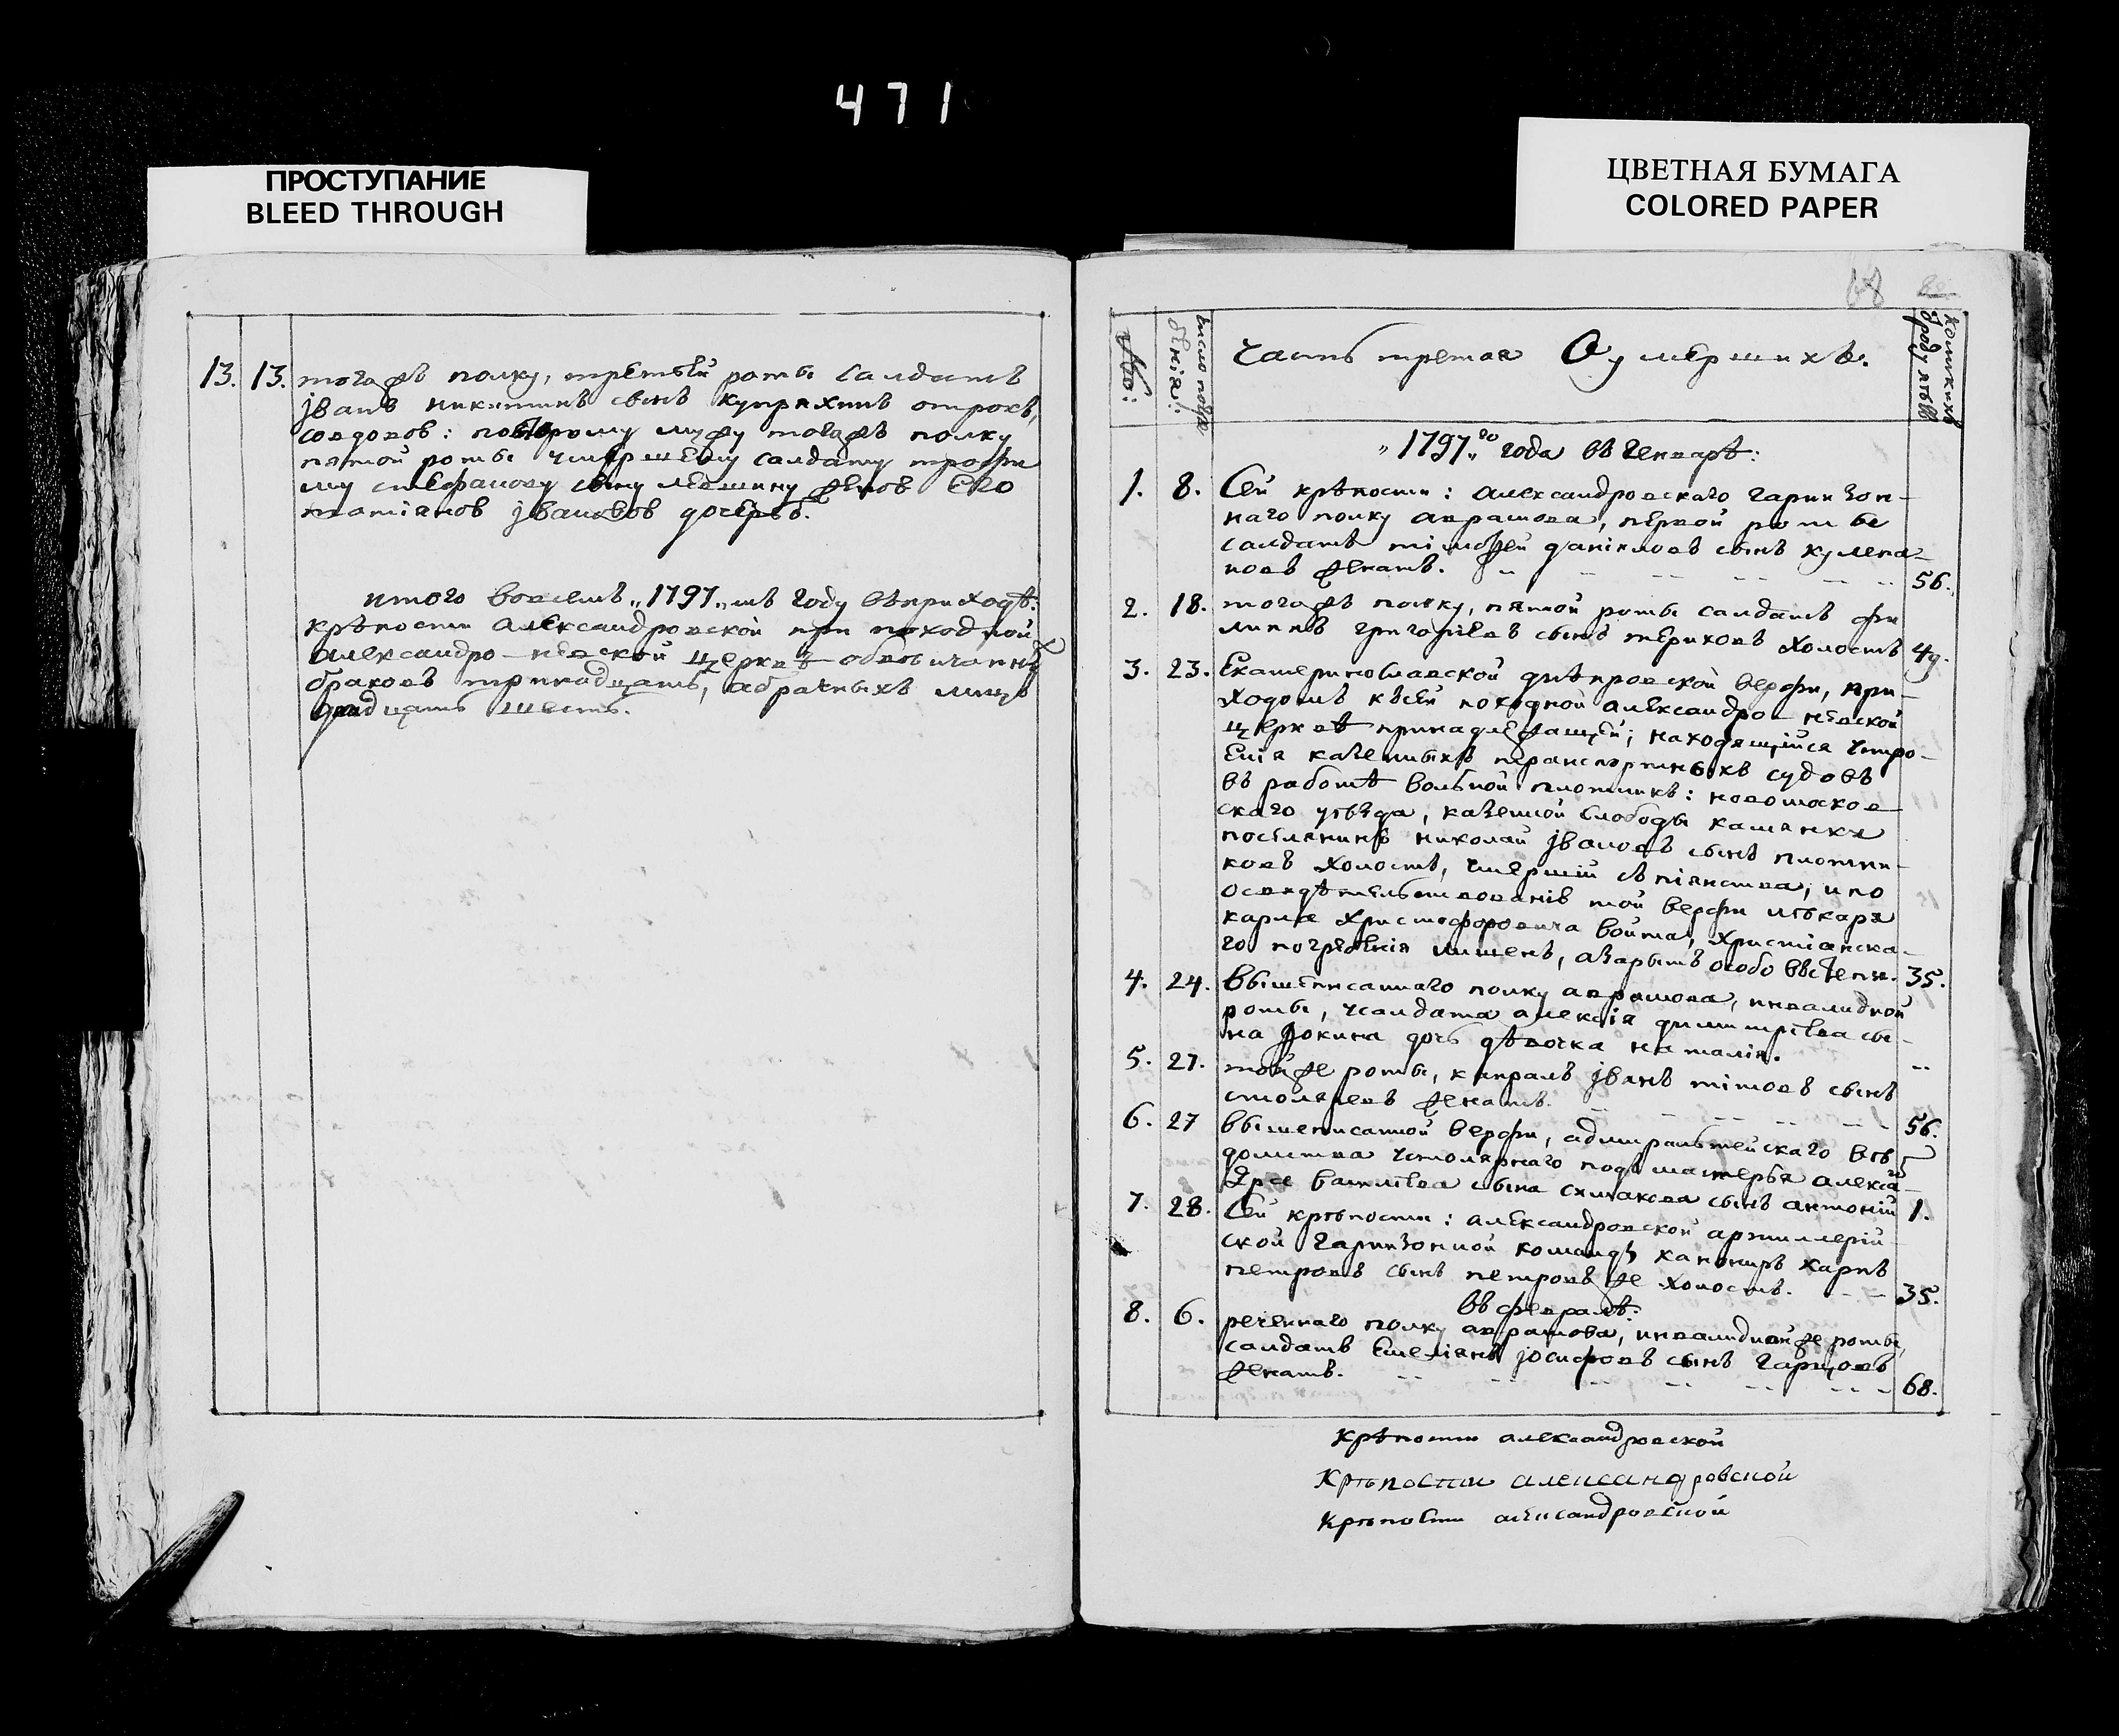 471
ПРОСТУПАНИЕ
BLEED THROUGH
ЦВЕТНАЯ БУМАГА
COLORED PAPER
13. 13. тогожъ полку, третьей роты Салдатъ
їванъ никитинъ сынъ купряхинъ отрокъ,
совдовою: по второму мужу тогожъ полку
пятой роты умершему салдату трофи
му стефанову сыну женою Его
татіаною ївановою дочерью.
итого восемъ „1797„ мъ году въ приходѣ:
крѣпости александровской при походной
александро-невской церквѣ обвѣнчанныхъ
браковъ тринадцать, а брачныхъ лицъ
дватцать шесть.
68
число погре
бенія:
коликихъ
ѿ роду лѣтъ
часть третая О умершихъ.
„1797„ го года въ Генварѣ:
1. 8. Сей крѣпости: александровскаго гарнизон-
наго полку аврамова, первой роты
салдатъ тімофей данїиловъ сынъ кулепа-
новъ женатъ. 56.
2. 18. тогожъ полку, пятой роты салдатъ фи
липпъ григорїевъ сынъ териховъ холостъ 49.
3. 23. Екатеринославской днѣпровской верфи, при-
ходомъ къ сей походной александро-невской
церквѣ принадлежащей; находящїйся устро-
енїя казенныхъ транспортныхъ судовъ
въ работѣ вольной плотникъ: новомосков
скаго уѣзда, казенной слободы каменки
поселянинъ николай ївановъ сынъ плотни-
ковъ холостъ, умершїй съ пїянства, и по
освидѣтельствованїю той верфи лѣкаря
карла христофоровича войта, христїанска-
го погребенїя лишенъ, а зарытъ особо въ степи. 35.
4. 24. вышеписаннаго полку аврамова, инвалидной
роты, у салдата алексїя димитрїева сы-
на дочь дѣвочка наталїя.
5. 27. тойже роты, капралъ їванъ тітовъ сынъ
столяревъ женатъ. 56.
6. 27 вышеписанной верфи, адмиралтейскаго вѣ
домства столярнаго подъмастерья алексѣ
я василїева сына сынъ антонїй 1.
7. 28. Сей крѣпости: александровской артиллерїй
ской гарнизонной команды канониръ карпъ
петровъ сынъ петровъ же холостъ. 35.
въ февралѣ:
8. 6. реченнаго полку аврамова, инвалидной же роты,
салдатъ Емелїянъ їосифовъ сынъ гарцовъ
женатъ. 68.
крѣпости александровской
крѣпости александровской
крѣпости александровской